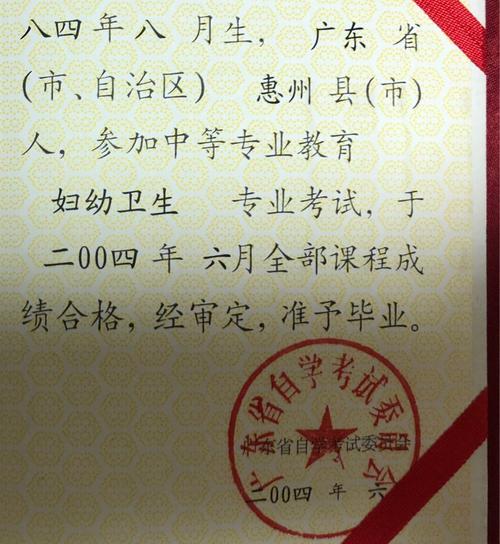 八四年八 月生， 广东 省
(市、自治区) 惠州 县(市)
人，参加中等专业教育
妇幼卫生 专业考试，于
二00四年 六月全部课程成
绩合格，经审定，准予毕业。
广东省自学考试委员会
广东省自学考试委员会
二00四 年 六